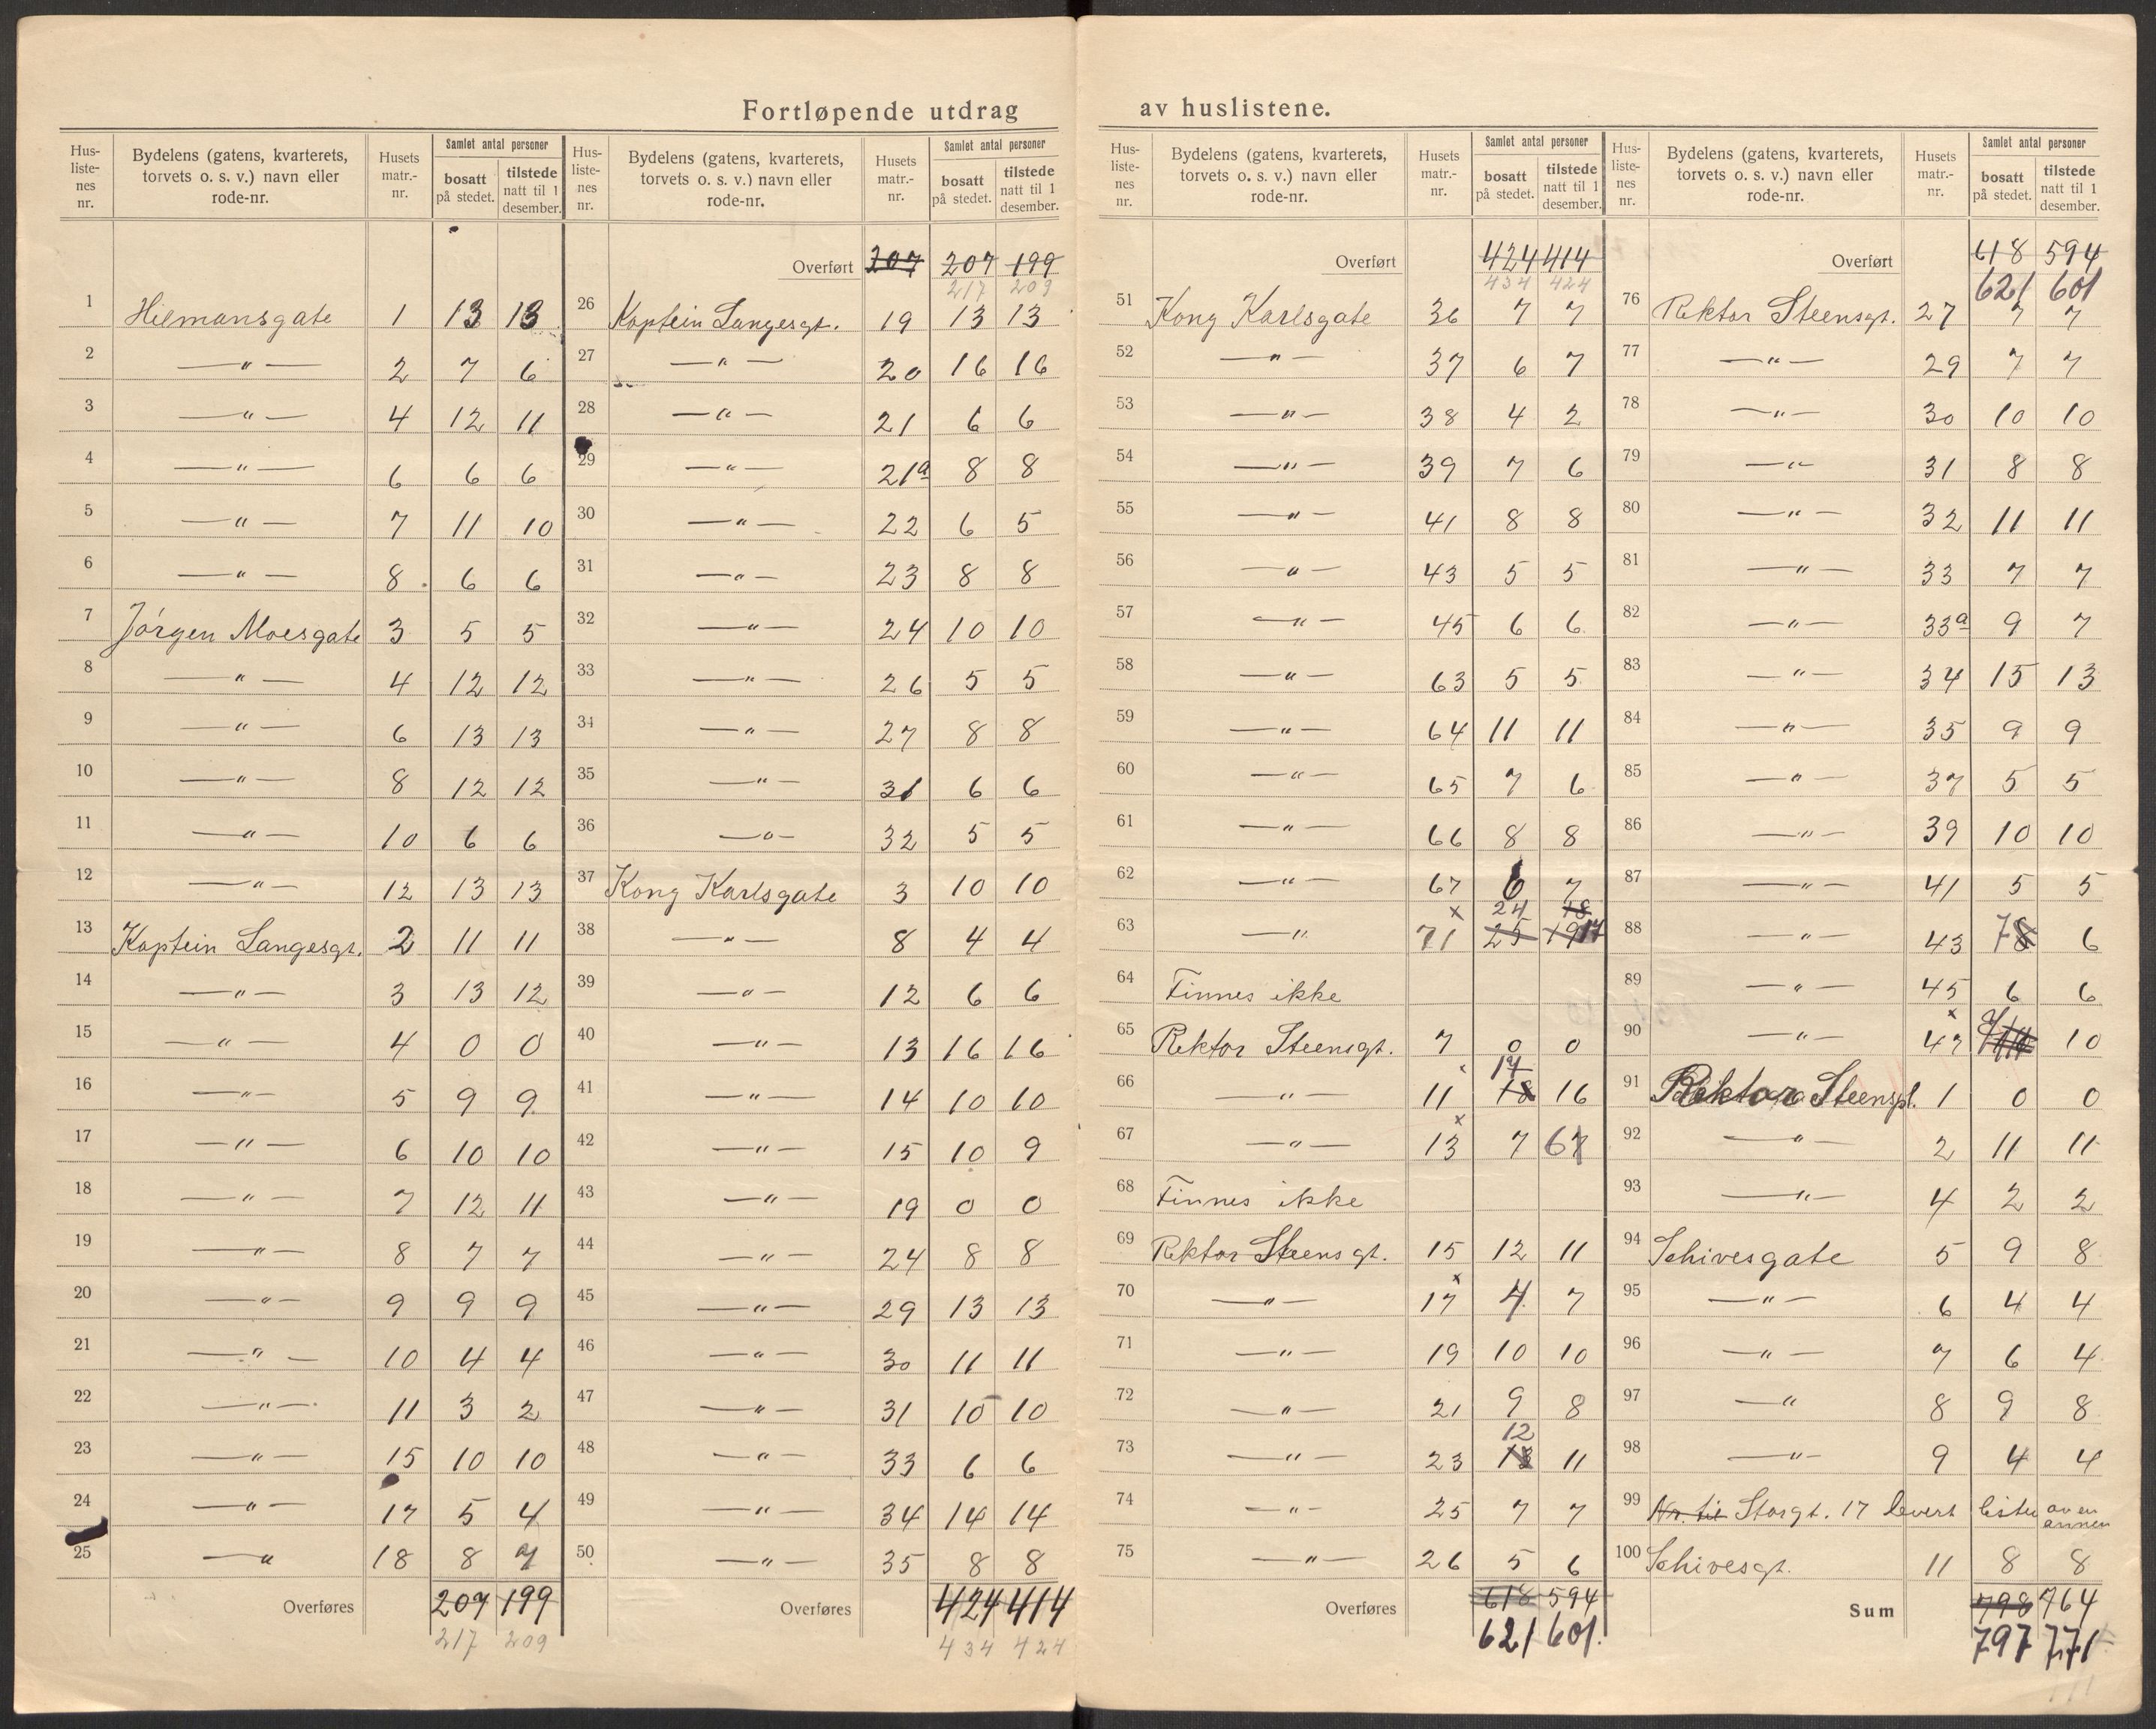 Fortløpende utdrag av huslistene.
Hus-liste-nes nr. Bydelens (gatens, kvarterets, torvets o. s. v.) navn eller rode-nr. Husets matr.-nr. Samlet antal personer bosatt på stedet. tilstede natt til 1 desember.
1 Hilmansgate 1 13 13
2 —"— 2 7 6
3 —"— 4 12 11
4 —"— 6 6 6
5 —"— 7 11 10
6 —"— 8 6 6
7 Jørgen Moesgate 3 5 5
8 —"— 4 12 12
9 —"— 6 13 13
10 —"— 8 12 12
11 —"— 10 6 6
12 —"— 12 13 13
13 Kaptein Langesgt. 2 11 11
14 —"— 3 13 12
15 —"— 4 0 0
16 —"— 5 9 9
17 —"— 6 10 10
18 —"— 7 12 11
19 —"— 8 7 7
20 —"— 9 9 9
21 —"— 10 4 4
22 —"— 11 3 2
23 —"— 15 10 10
24 —"— 17 5 4
25 —"— 18 8 7
Overføres 207 199
217 209
Hus-liste-nes nr. Bydelens (gatens, kvarterets, torvets o. s. v.) navn eller rode-nr. Husets matr.-nr. Samlet antal personer bosatt på stedet. tilstede natt til 1 desember.
Overført 207 207 199
217 209
26 Kaptein Langesgt. 19 13 13
27 —"— 20 16 16
28 —"— 21 6 6
29 —"— 21a 8 8
30 —"— 22 6 5
31 —"— 23 8 8
32 —"— 24 10 10
33 —"— 26 5 5
34 —"— 27 8 8
35 —"— 31 6 6
36 —"— 32 5 5
37 Kong Karlsgate 3 10 10
38 —"— 8 4 4
39 —"— 12 6 6
40 —"— 13 16 16
41 —"— 14 10 10
42 —"— 15 10 9
43 —"— 19 0 0
44 —"— 24 8 8
45 —"— 29 13 13
46 —"— 30 11 11
47 —"— 31 10 10
48 —"— 33 6 6
49 —"— 34 14 14
50 —"— 35 8 8
Overføres 424 414
434 424
Hus-liste-nes nr. Bydelens (gatens, kvarterets, torvets o. s. v.) navn eller rode-nr. Husets matr.-nr. Samlet antal personer bosatt på stedet. tilstede natt til 1 desember.
Overført 424 414
434 424
51 Kong Karlsgate 36 7 7
52 —"— 37 6 7
53 —"— 38 4 2
54 —"— 39 7 6
55 —"— 41 8 8
56 —"— 43 5 5
57 —"— 45 6 6
58 —"— 63 5 5
59 —"— 64 11 11
60 —"— 65 7 6
61 —"— 66 8 8
62 —"— 67 6 7
x 24 18
63 —"— 71 25 19 17
64 Finnes ikke
65 Rektor Steensgt. 7 0 0
x 17
66 —"— 11 18 16
x
67 —"— 13 7 6 7
68 Finnes ikke
69 Rektor Steensgt. 15 12 11
x
70 —"— 17 4 7
71 —"— 19 10 10
72 —"— 21 9 8
12
73 —"— 23 13 11
74 —"— 25 7 7
75 —"— 26 5 6
Overføres 618 594
621 601.
Hus-liste-nes nr. Bydelens (gatens, kvarterets, torvets o. s. v.) navn eller rode-nr. Husets matr.-nr. Samlet antal personer bosatt på stedet. tilstede natt til 1 desember.
Overført 618 594
621 601
76 Rektor Steensgt. 27 7 7
77 —"— 29 7 7
78 —"— 30 10 10
79 —"— 31 8 8
80 —"— 32 11 11
81 —"— 33 7 7
82 —"— 33a 9 7
83 —"— 34 15 13
84 —"— 35 9 9
85 —"— 37 5 5
86 —"— 39 10 10
87 —"— 41 5 5
88 —"— 43 7 8 6
89 —"— 45 6 6
x
90 —"— 47 10
91 Rektor Steenspl. 1 0 0
92 —"— 2 11 11
93 —"— 4 2 2
94 Schivesgate 5 9 8
95 —"— 6 4 4
96 —"— 7 6 4
97 —" 8 9 8
98 —"— 9 4 4
99 Nr. til Storgt. 17 levert liste av en annen
100 Schivesgt. 11 8 8
Sum 798 764
797 771